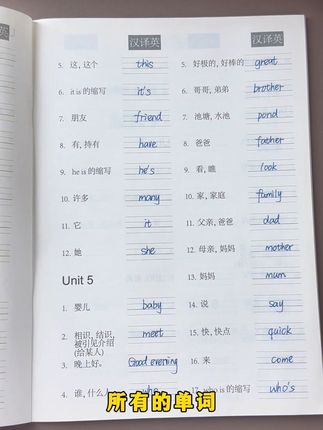 汉译英
5. 这, 这个 this
6. it is的缩写 it's
7. 朋友 friend
8. 有, 持有 have
9. he is的缩写 he's
10. 许多 many
11. 它 it
12. 她 she
Unit 5
1. 婴儿 baby
2. 相识, 结识, 被引见介绍 (给某人) meet
3. 晚上好。 Good evening
4. 谁, 什么人 who
汉译英
5. 好极的, 好棒的 great
6. 哥哥, 弟弟 brother
7. 池塘, 水池 pond
8. 爸爸 father
9. 看, 瞧 look
10. 家, 家庭 family
11. 父亲, 爸爸 dad
12. 母亲, 妈妈 mother
13. 妈妈 mum
14. 说 say
15. 快, 快点 quick
16. 来 come
17. who is的缩写 who's
所有的单词